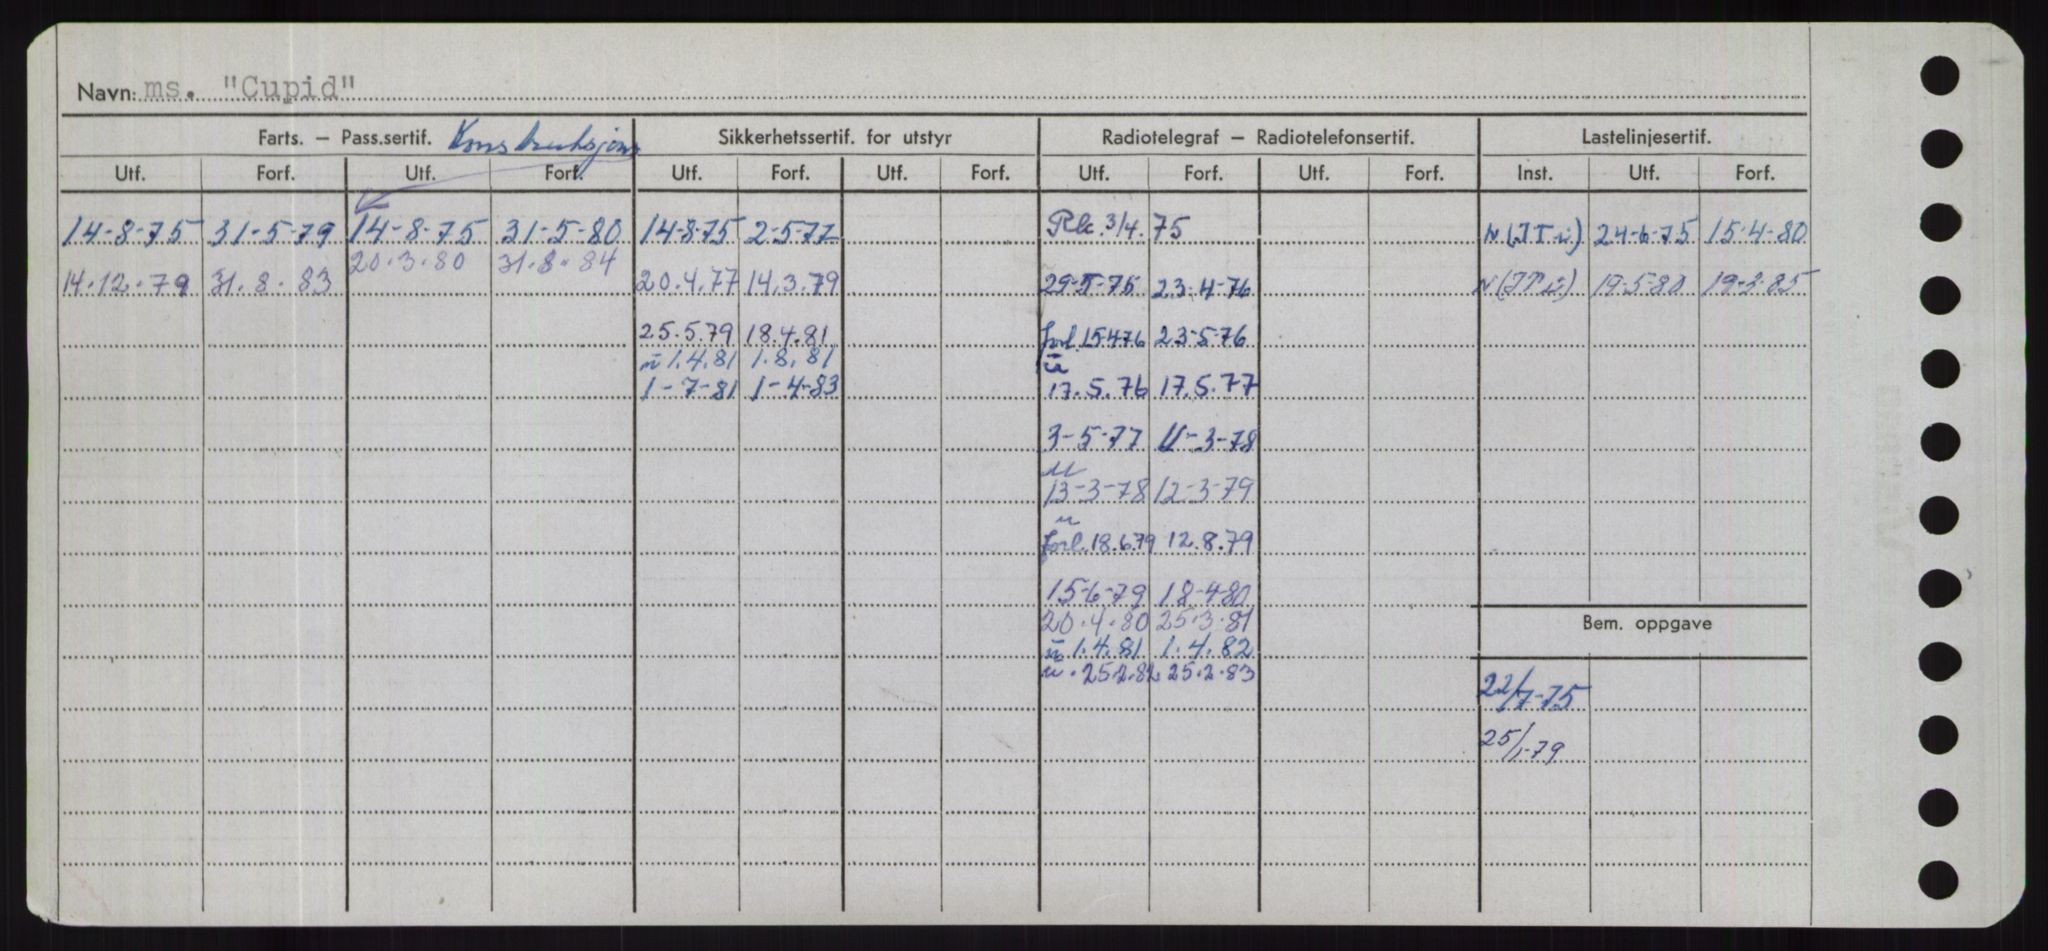 Navn: ms. "Cupid"
Farts. – Pass.sertif. Konstruksjons Sikkerhetssertif. for utstyr Radiotelegraf – Radiotelefonsertif. Lastelinjesertif.
Utf. Forf. Utf. Forf. Utf. Forf. Utf. Forf. Utf. Forf. Utf. Forf. Inst. Utf. Forf.
14-8-75 31-5-79 14-8-75 31-5-80 14-8-75 2-5-77 3/4.75 24-6-75 15-4-80
20.3.80 31.8.84
14.12.79 31.8.83 20.4.77 14.3.79 29-5-75 23-4-76 19-5-80 19-2-85
25.5.79 18.4.81 forl. 15.4.76 23-5-76
u 1.4.81 1.8.81 u
1-7-81 1-4-83 17.5.76 17.5.77
3-5-77 11-3-78
u
13-3-78 12-3-79
u
forl. 18.6.79 12.8.79
15-6-79 18-4-80
20.4.80 25.3.81
Bem. oppgave
u 1.4.81 1.4.82
u. 25.2.82 25.2.83
22/7-75
25/1-79